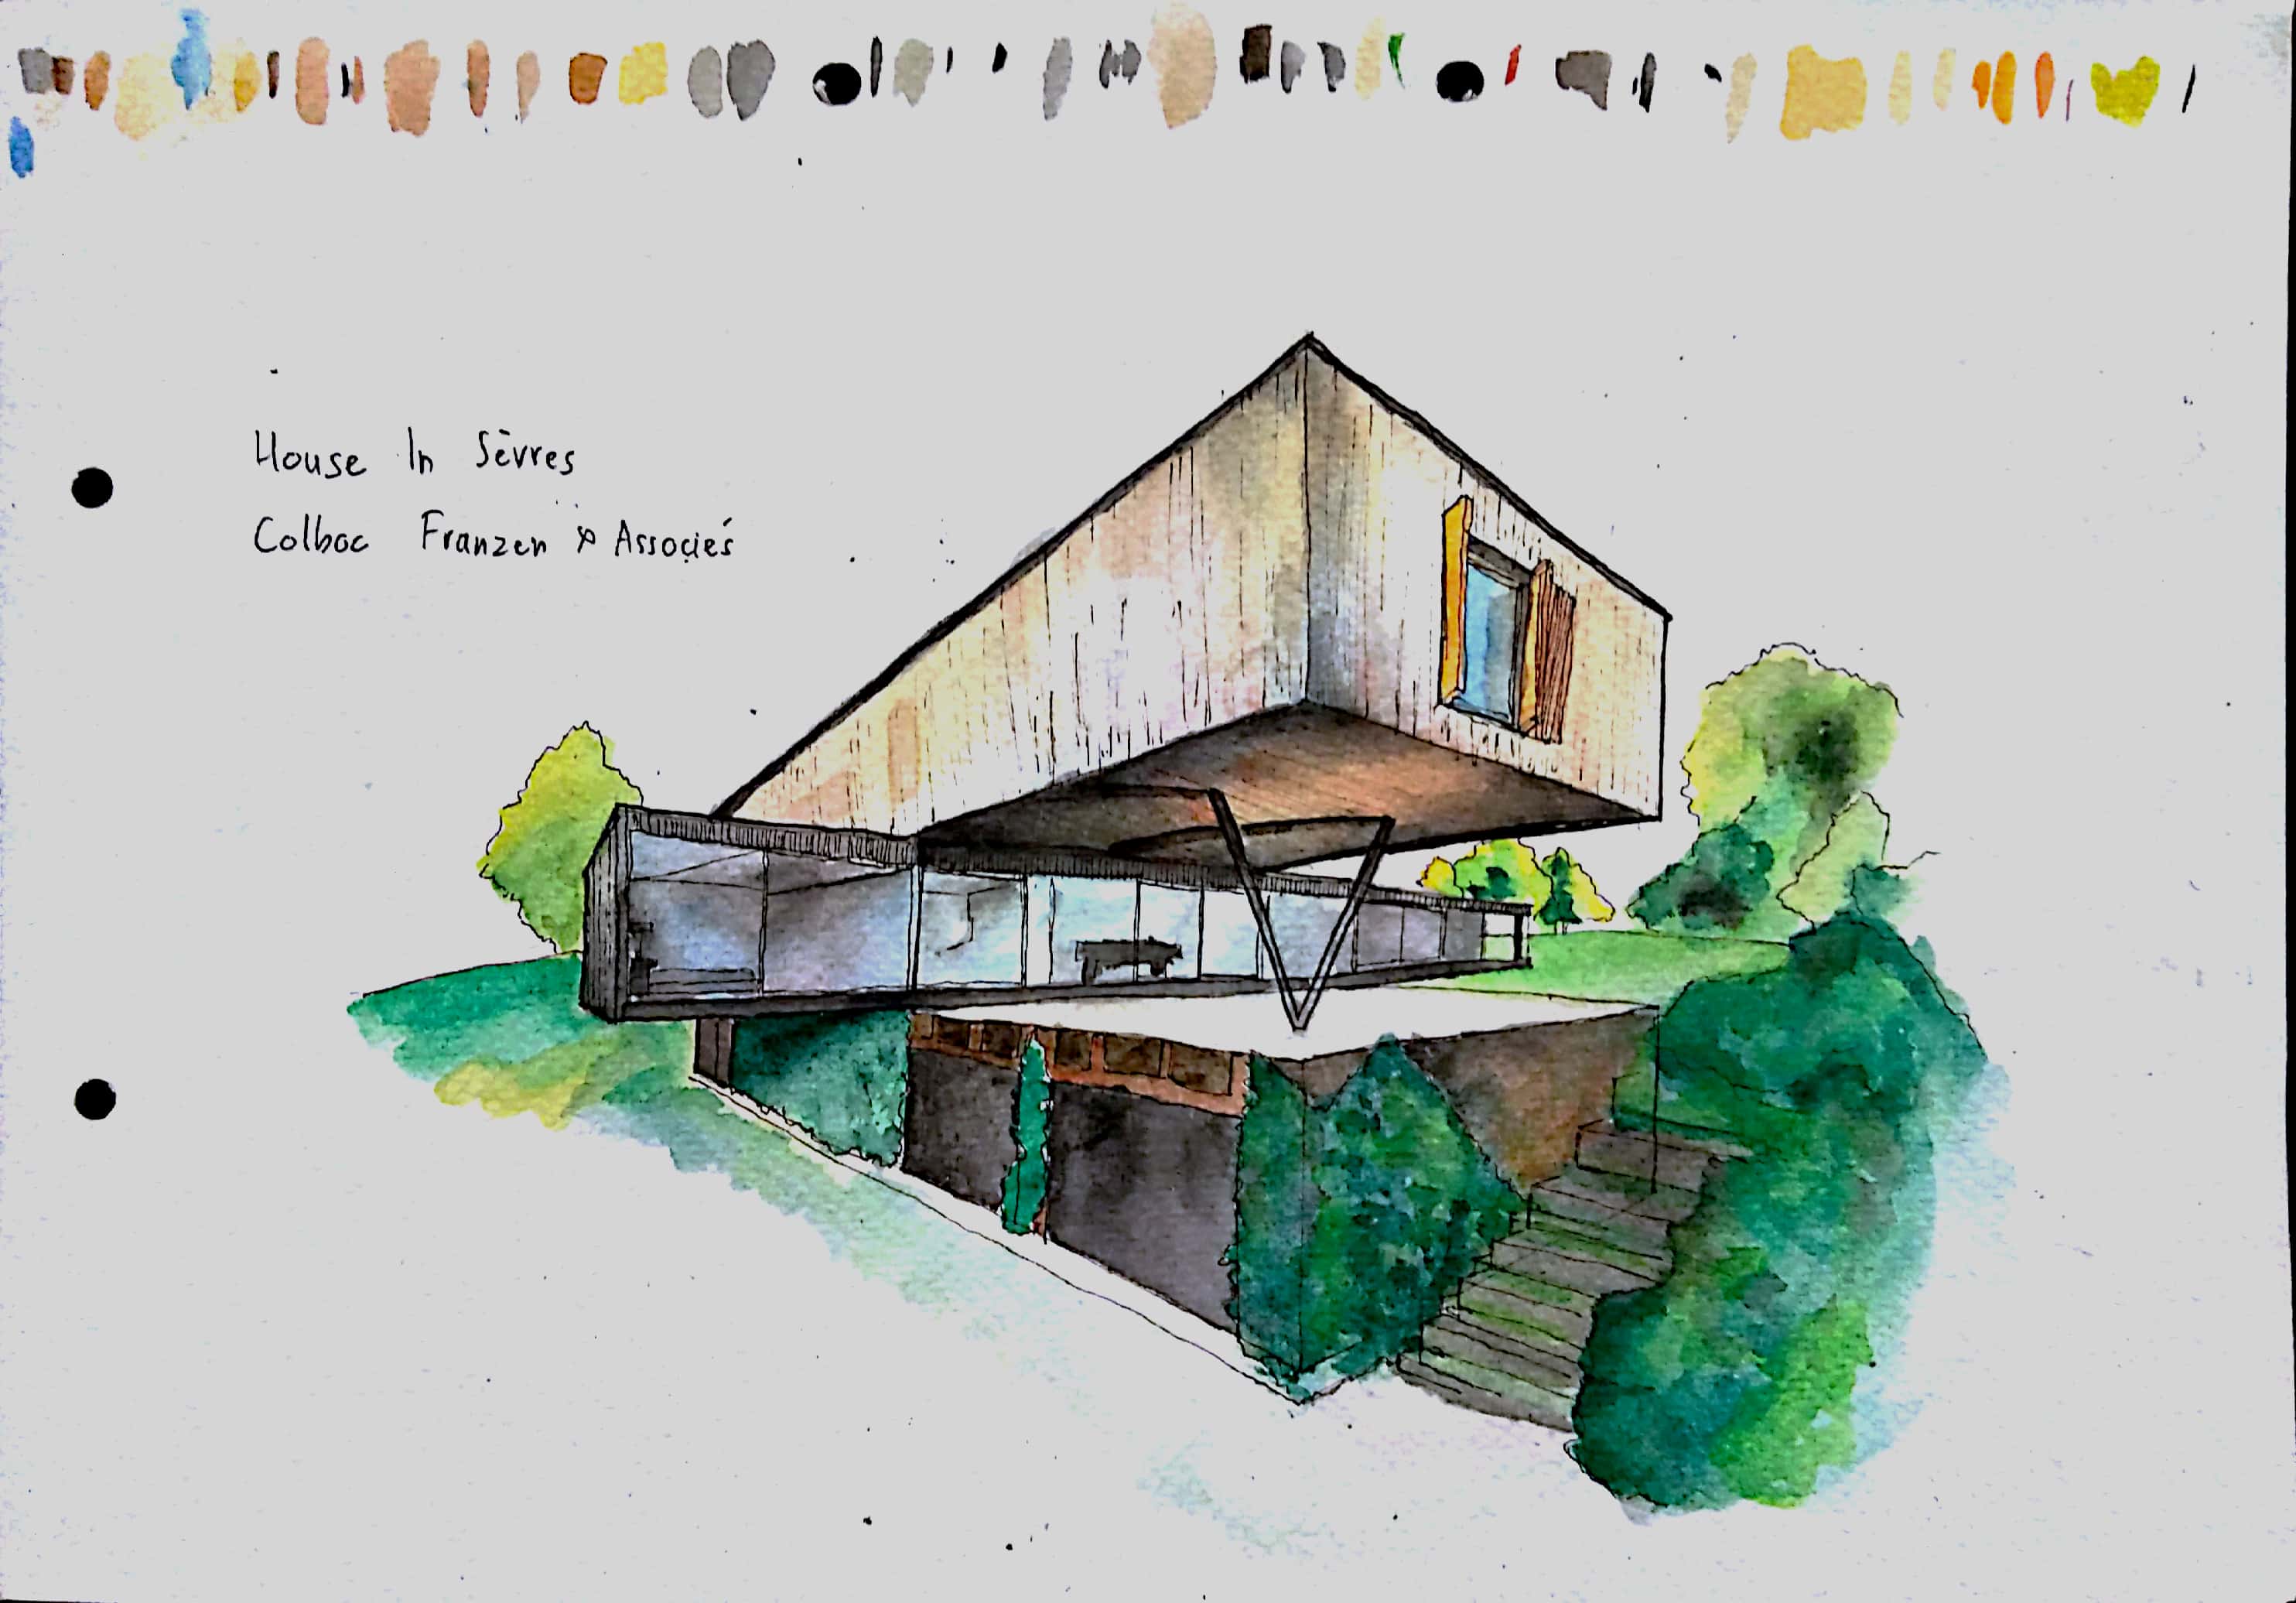 House In Sèvres
Colboc Franzen & Associés